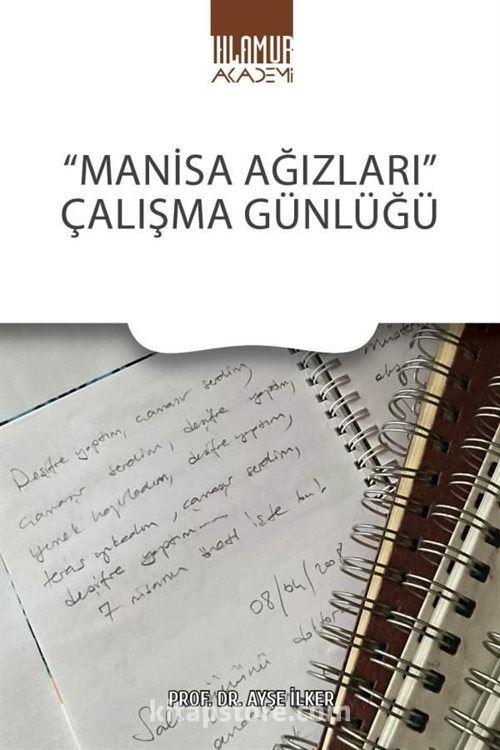 IHLAMUR
AKADEMİ
“MANİSA AĞIZLARI”
ÇALIŞMA GÜNLÜĞÜ
Deşifre yaptım, çamaşır serdim,
çamaşır serdim, deşifre yaptım,
yemek hazırladım, deşifre yaptım,
teras yıkadım, çamaşır serdim,
deşifre yaptım
7 nisanın özeti işte bu!
08/04/2008
PROF. DR. AYŞE İLKER
kitapstore.com